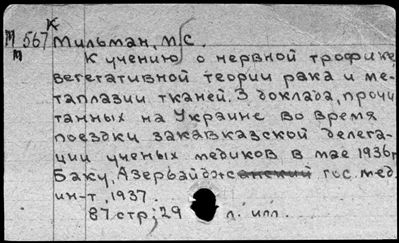 К
М 567 Мильман, М.С.
М
К учению о нервной трофике,
вегетативной теории рака и ме-
таплазии тканей. 3 доклада, прочи
танных на Украине во время
поездки закавказской делега-
ции ученых медиков в мае 1936г
Баку, Азербайджанский гос. мед.
ин-т, 1937.
87 стр; 29 л. илл.